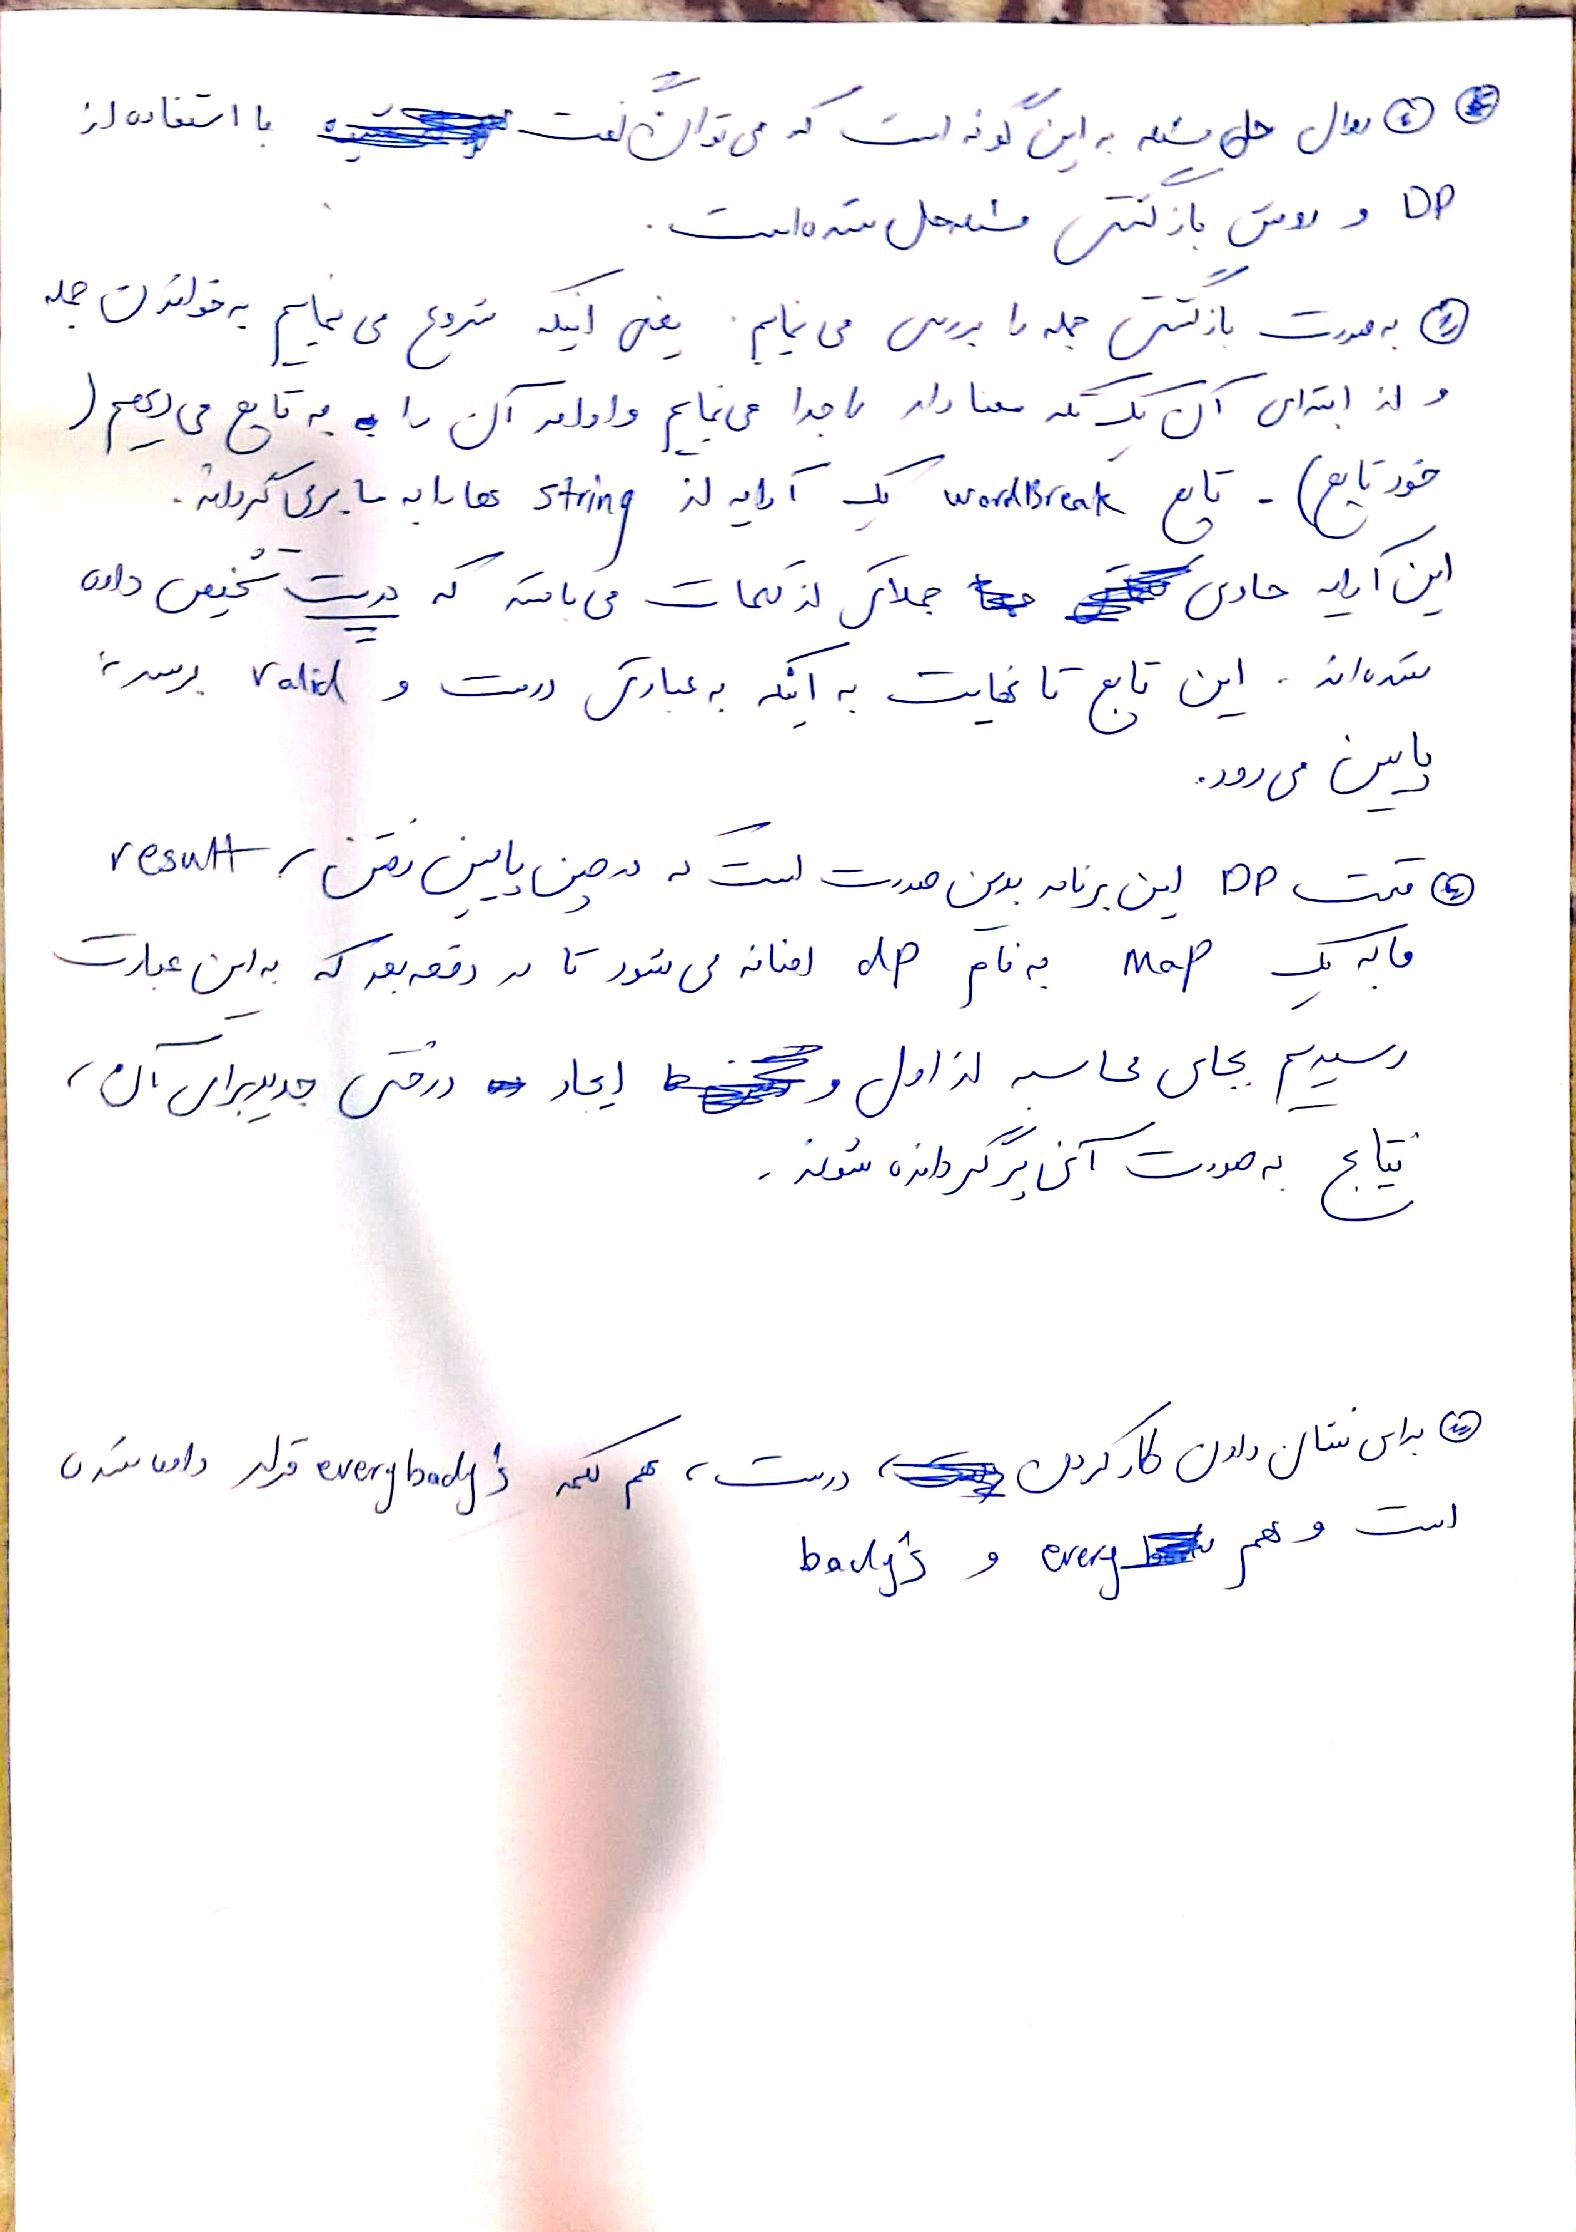 ① روال حل مسئله به این گونه است که می‌توان گفت با استفاده از
DP و روش بازگشتی مسئله حل شده است.
② به صورت بازگشتی جمله را بررسی می‌نمایم. یعنی اینکه شروع می‌نماییم به خواندن جمله
و از ابتدای آن یک تکه معنادار را جدا می‌نماییم و ادامه آن را به تابع می‌دهیم (
خود تابع) - تابع wordBreak یک آرایه از string ها را به ما برمی‌گرداند.
این آرایه حاوی جملاتی از کلمات می‌باشد که درست تشخیص داده
شده‌اند. این تابع تا نهایت به اینکه به عبارتی درست و valid برسد،
پایین می‌رود.
③ قسمت DP این برنامه بدین صورت است که در حین پایین رفتن، result
ها به یک Map به نام dp اضافه می‌شود تا در دفعه بعد که به این عبارت
رسیدیم بجای محاسبه از اول و ایجاد درختی جدید برای آن،
نتایج به صورت آنی برگردانده شوند.
برای نشان دادن کار کردن درست، هم کلمه everybody's قرار داده شده
است و هم every و body's